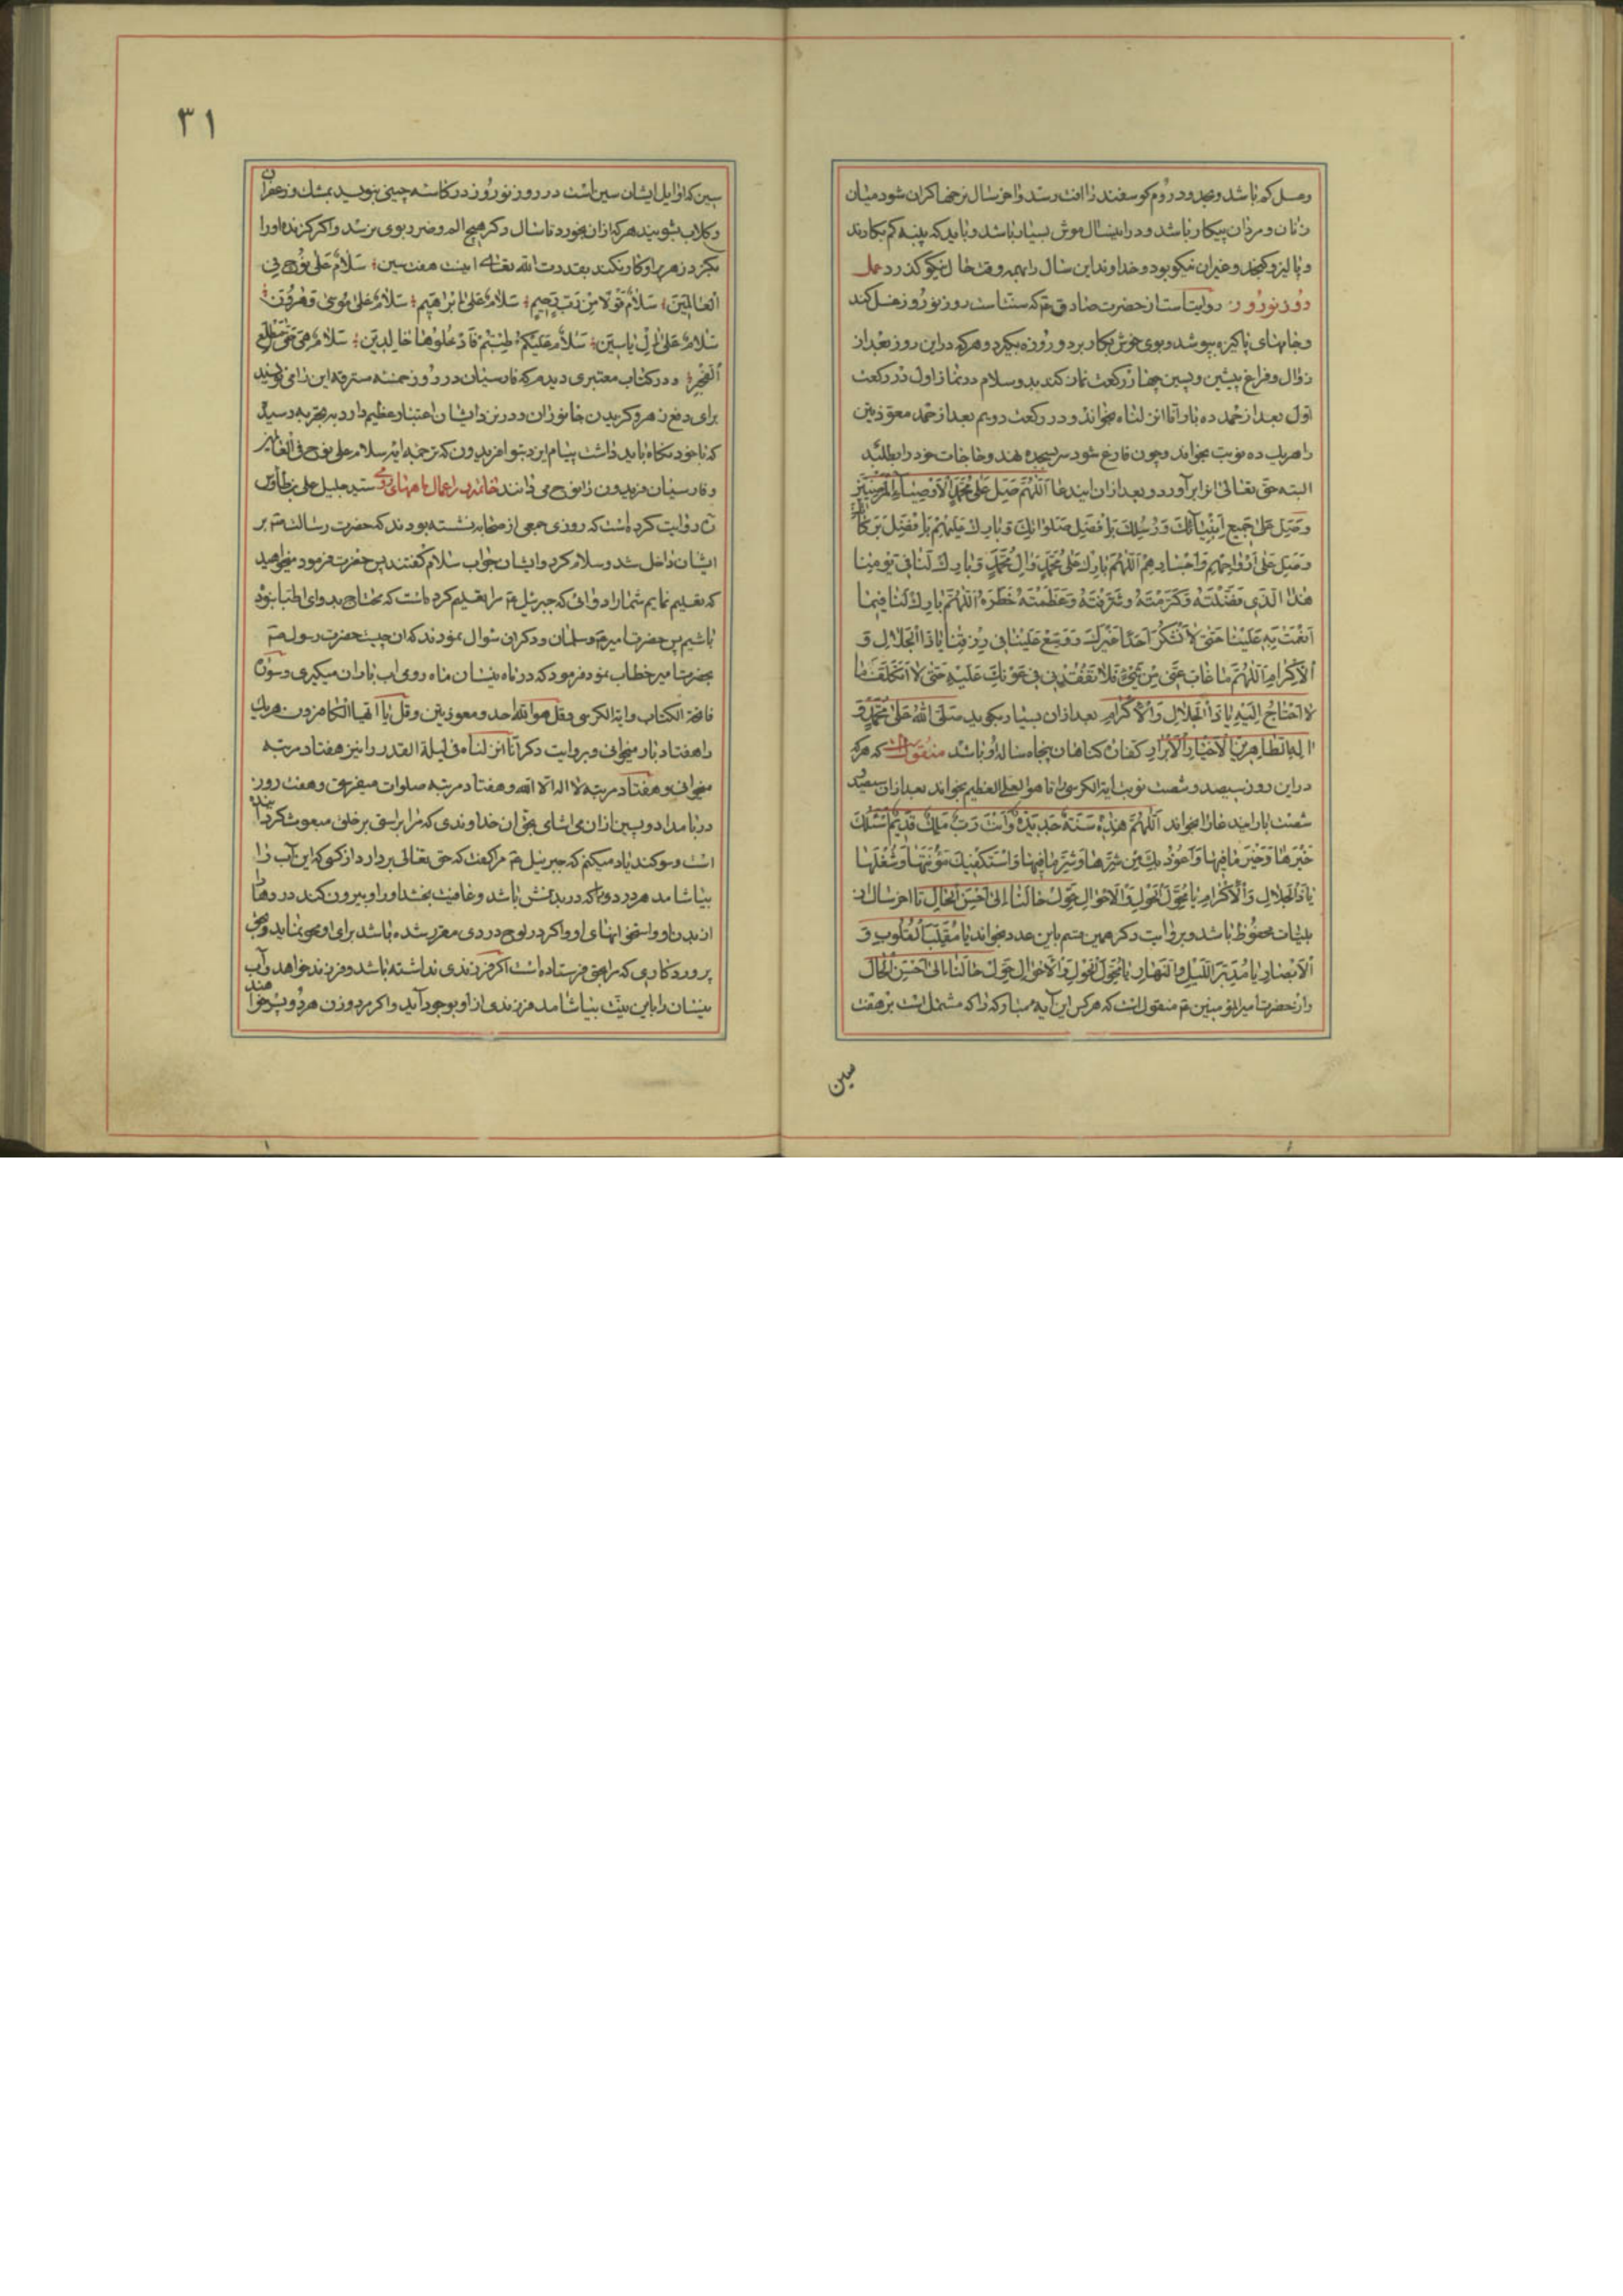 وعسل کم باشد و بحدود روم گوسفند را آفت رسد و آخر سال نرخها گران شود میان
زنان و مردان پیکار باشد و در این سال موش بسیار باشد و باید که پنبه کم بکارند
و پالیز و کنجد و غیر آن نیکو بود و خداوند این سال را بهمه وقت حال نیکو گذرد عمل
روز نوروز روایتست از حضرت صادق ع م که سنت است روز نوروز غسل کند
و جامهای پاکیزه بپوشد و بوی خوش بکار برد و روزه بگیرد و هر که در این روز بعد از
زوال و فراغ پیشین و پسین چهار رکعت نماز کند بدو سلام در نماز اول در رکعت
اول بعد از حمد ده بار انا انزلناه بخواند و در رکعت دویم بعد از حمد معوذتین
را هر یک ده نوبت بخواند و چون فارغ شود سر بسجده نهد و حاجات خود را بطلبد
البته حق تعالی برآورد و بعد از آن این دعا اللهم صل علی محمد الاوصیاء المرضیین
وصل علی جمیع انبیائک ورسلک بافضل صلواتک و بارک علیهم بافضل برکاتک
وصل علی ارواحهم واجسادهم اللهم بارک علی محمد وال محمد و بارک لنا فی یومنا
هذا الذی فضلته وکرمته وشرفته وعظمته خطره اللهم بارک لنا فیما
انعمت به علینا حتی لا نشکر احدا غیرک ووسع علینا فی رزقنا یا ذا الجلال و
الاکرام اللهم ما غاب عنی من شیء فلا تفقدنی فی عونک علیه حتی لا اتکلف ما
لا احتاج الیه یا ذا الجلال والاکرام بعد از آن بسیار بگوید صلی الله علی محمد و
اله الطاهرین الاخیار الابرار کفاره گناهان پنجاه ساله او باشد منقول است که هر که
در این روز سیصد و شصت نوبت آیة الکرسی را تا هو العلی العظیم بخواند بعد از آن سیصد و
شصت بار این دعا را بخواند اللهم هذه سنة جدیدة وانت رب ملک قدیم اسئلک
خیرها وخیر ما فیها واعوذ بک من شرها وشر ما فیها واستکفیک مؤنتها وشغلها
یا ذا الجلال والاکرام یا محول الحول والاحوال حول حالنا الی احسن الحال تا آخر سال از
بلیات محفوظ باشد و بروایت دیگر همین قسم باین عدد بخواند یا مقلب القلوب و
الابصار یا مدبر اللیل والنهار یا محول الحول والاحوال حول حالنا الی احسن الحال
و از حضرت امیر المؤمنین ع م منقول است که هر کس این آیه مبارکه را که مشتمل است بر هفت
سین
۳۱
سین که اوایل ایشان سین است در روز نوروز در کاسه چینی بنویسد بمشک و زعفران
و گلاب بشویند هر که از آن بخورد تا سال دگر هیچ الم و ضرر بوی نرسد و اگر گزنده او را
بگزد زهر بر او کار نکند بقدرت الله تعالی اینست هفت سین سلام علی نوح فی
العالمین سلام قولا من رب رحیم سلام علی ابراهیم سلام علی موسی وهرون
سلام علی ال یاسین سلام علیکم طبتم فادخلوها خالدین سلام هی حتی مطلع
الفجر و در کتاب معتبری دیدم که فارسیان در روز خمسه مسترقه این را می نویسند
برای دفع زهر و گزیدن جانوران و در نزد ایشان اعتبار عظیم دارد و بتجربه رسیده
که با خود نگاه باید داشت بنام ایزد بتو افریدون که ترجمه آیه سلام علی نوح فی العالمین
و فارسیان فریدون را نوح می دانند خاتمه در اعمال ماههای رومی سید جلیل علی بن طاوس
ره روایت کرده است که روزی جمعی از صحابه نشسته بودند که حضرت رسالت ص م بر
ایشان داخل شد و سلام کرد و ایشان جواب سلام گفتند پس حضرت فرمود میخواهید
که تعلیم نمایم شما را دوائی که جبرئیل ع م مرا تعلیم کرده است که محتاج بدوای اطبا نبوده
باشیم پس حضرت امیر ع م و سلمان و دگران سؤال نمودند که آن چیست حضرت رسول ص م
بحضرت امیر خطاب نمود فرمود که در ماه نیسان ماه رومی آب باران میگیری و سوره
فاتحة الکتاب و آیة الکرسی و قل هو الله احد و معوذتین و قل یا ایها الکافرون هر یک
را هفتاد بار میخوانی و بروایت دگر انا انزلناه فی لیلة القدر را نیز هفتاد مرتبه
میخوانی و هفتاد مرتبه لا اله الا الله و هفتاد مرتبه صلوات میفرستی و هفت روز
در بامداد و پسین از آن می آشامی بحق آن خداوندی که مرا براستی بر خلق مبعوث گردانیده
است و سوگند یاد میکنم که جبرئیل ع م مرا گفت که حق تعالی بردارد از کسی که این آب را
بیاشامد هر درد را که در بدنش باشد و عافیت بخشد او را و بیرون کند دردها را
از بدن او و استخوانهای او و اگر در لوح دردی مقرر شده باشد برای او محو نماید و بحق
پروردگاری که مرا بحق فرستاده است اگر فرزندی نداشته باشد و فرزند خواهد و آب
نیسان را باین نیت بیاشامد فرزندی از او بوجود آید و اگر مرد و زن هر دو پسر خواهند